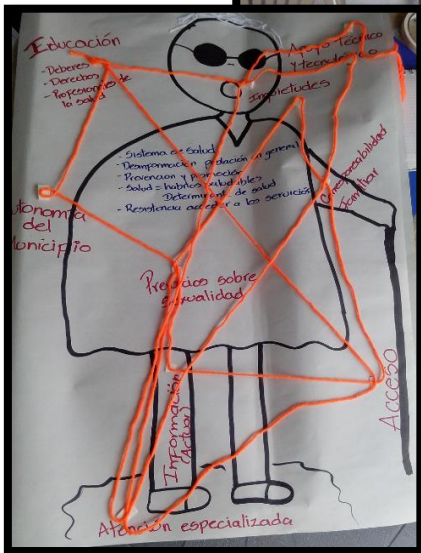 Educación
- Deberes
- Derechos
- Profesionales de
la salud
Apoyo Técnico
y tecnológico
Inquietudes
- Sistema de Salud
- Desinformación población en general
- Prevención y promoción
- Salud = hábitos saludables
Determinant de salud
- Resistencia acceder a los servicios
Corresponsabilidad
Familiar
Autonomía
del
Municipio
Prejuicios sobre
sexualidad
Información
(Actuar)
Acceso
Atención especializada